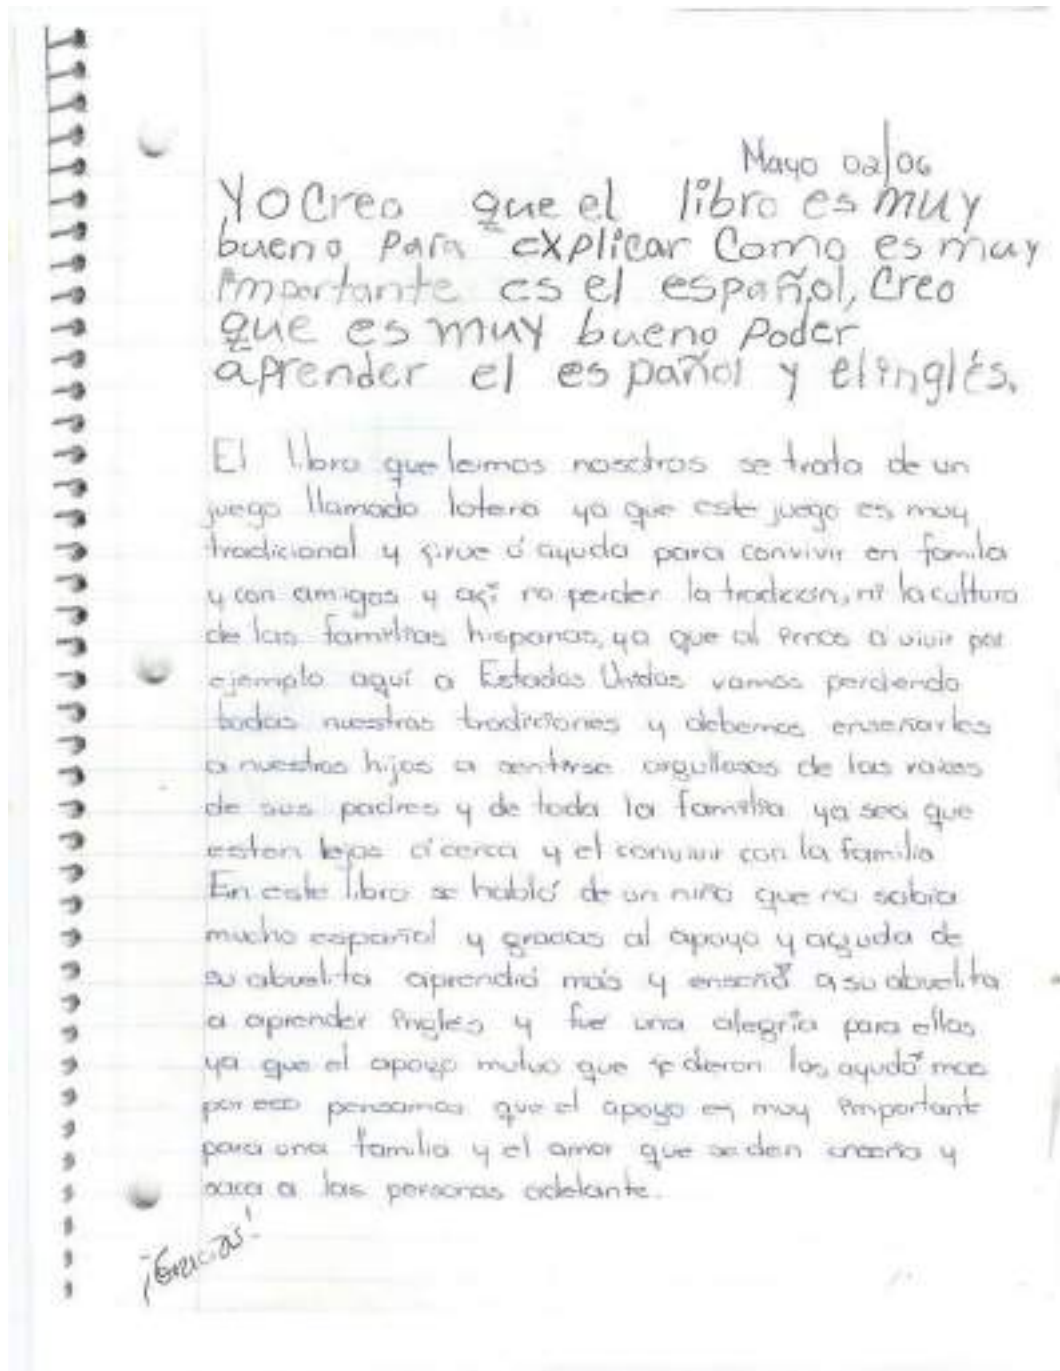 Mayo 02/06
Yo Creo que el libro es muy
bueno para explicar Como es muy
importante es el español, Creo
que es muy bueno poder
aprender el español y el inglés.
El libro que leimos nosotros se trata de un
juego llamado loteria ya que este juego es muy
tradicional y sirve ó ayuda para convivir en familia
y con amigos y así no perder la tradición, ni la cultura
de las familias hispanas, ya que al a vivir por
ejemplo aquí a Estados Unidos vamos perdiendo
todas nuestras tradiciones y debemos enseñarles
a nuestros hijos a sentirse orgullosos de las raíces
de sus padres y de toda la familia ya sea que
esten lejos ó cerca y el convivir con la familia
En este libro se habló de un niño que no sabia
mucho español y gracias al apoyo y ayuda de
su abuelita aprendió más y enseñó a su abuelita
a aprender inglés y fue una alegría para ellos
ya que el apoyo mutuo que se dieron los ayudó mas
por eso pensamos que el apoyo es muy importante
para una familia y el amor que se den enseña y
saca a las personas adelante.
¡Gracias!